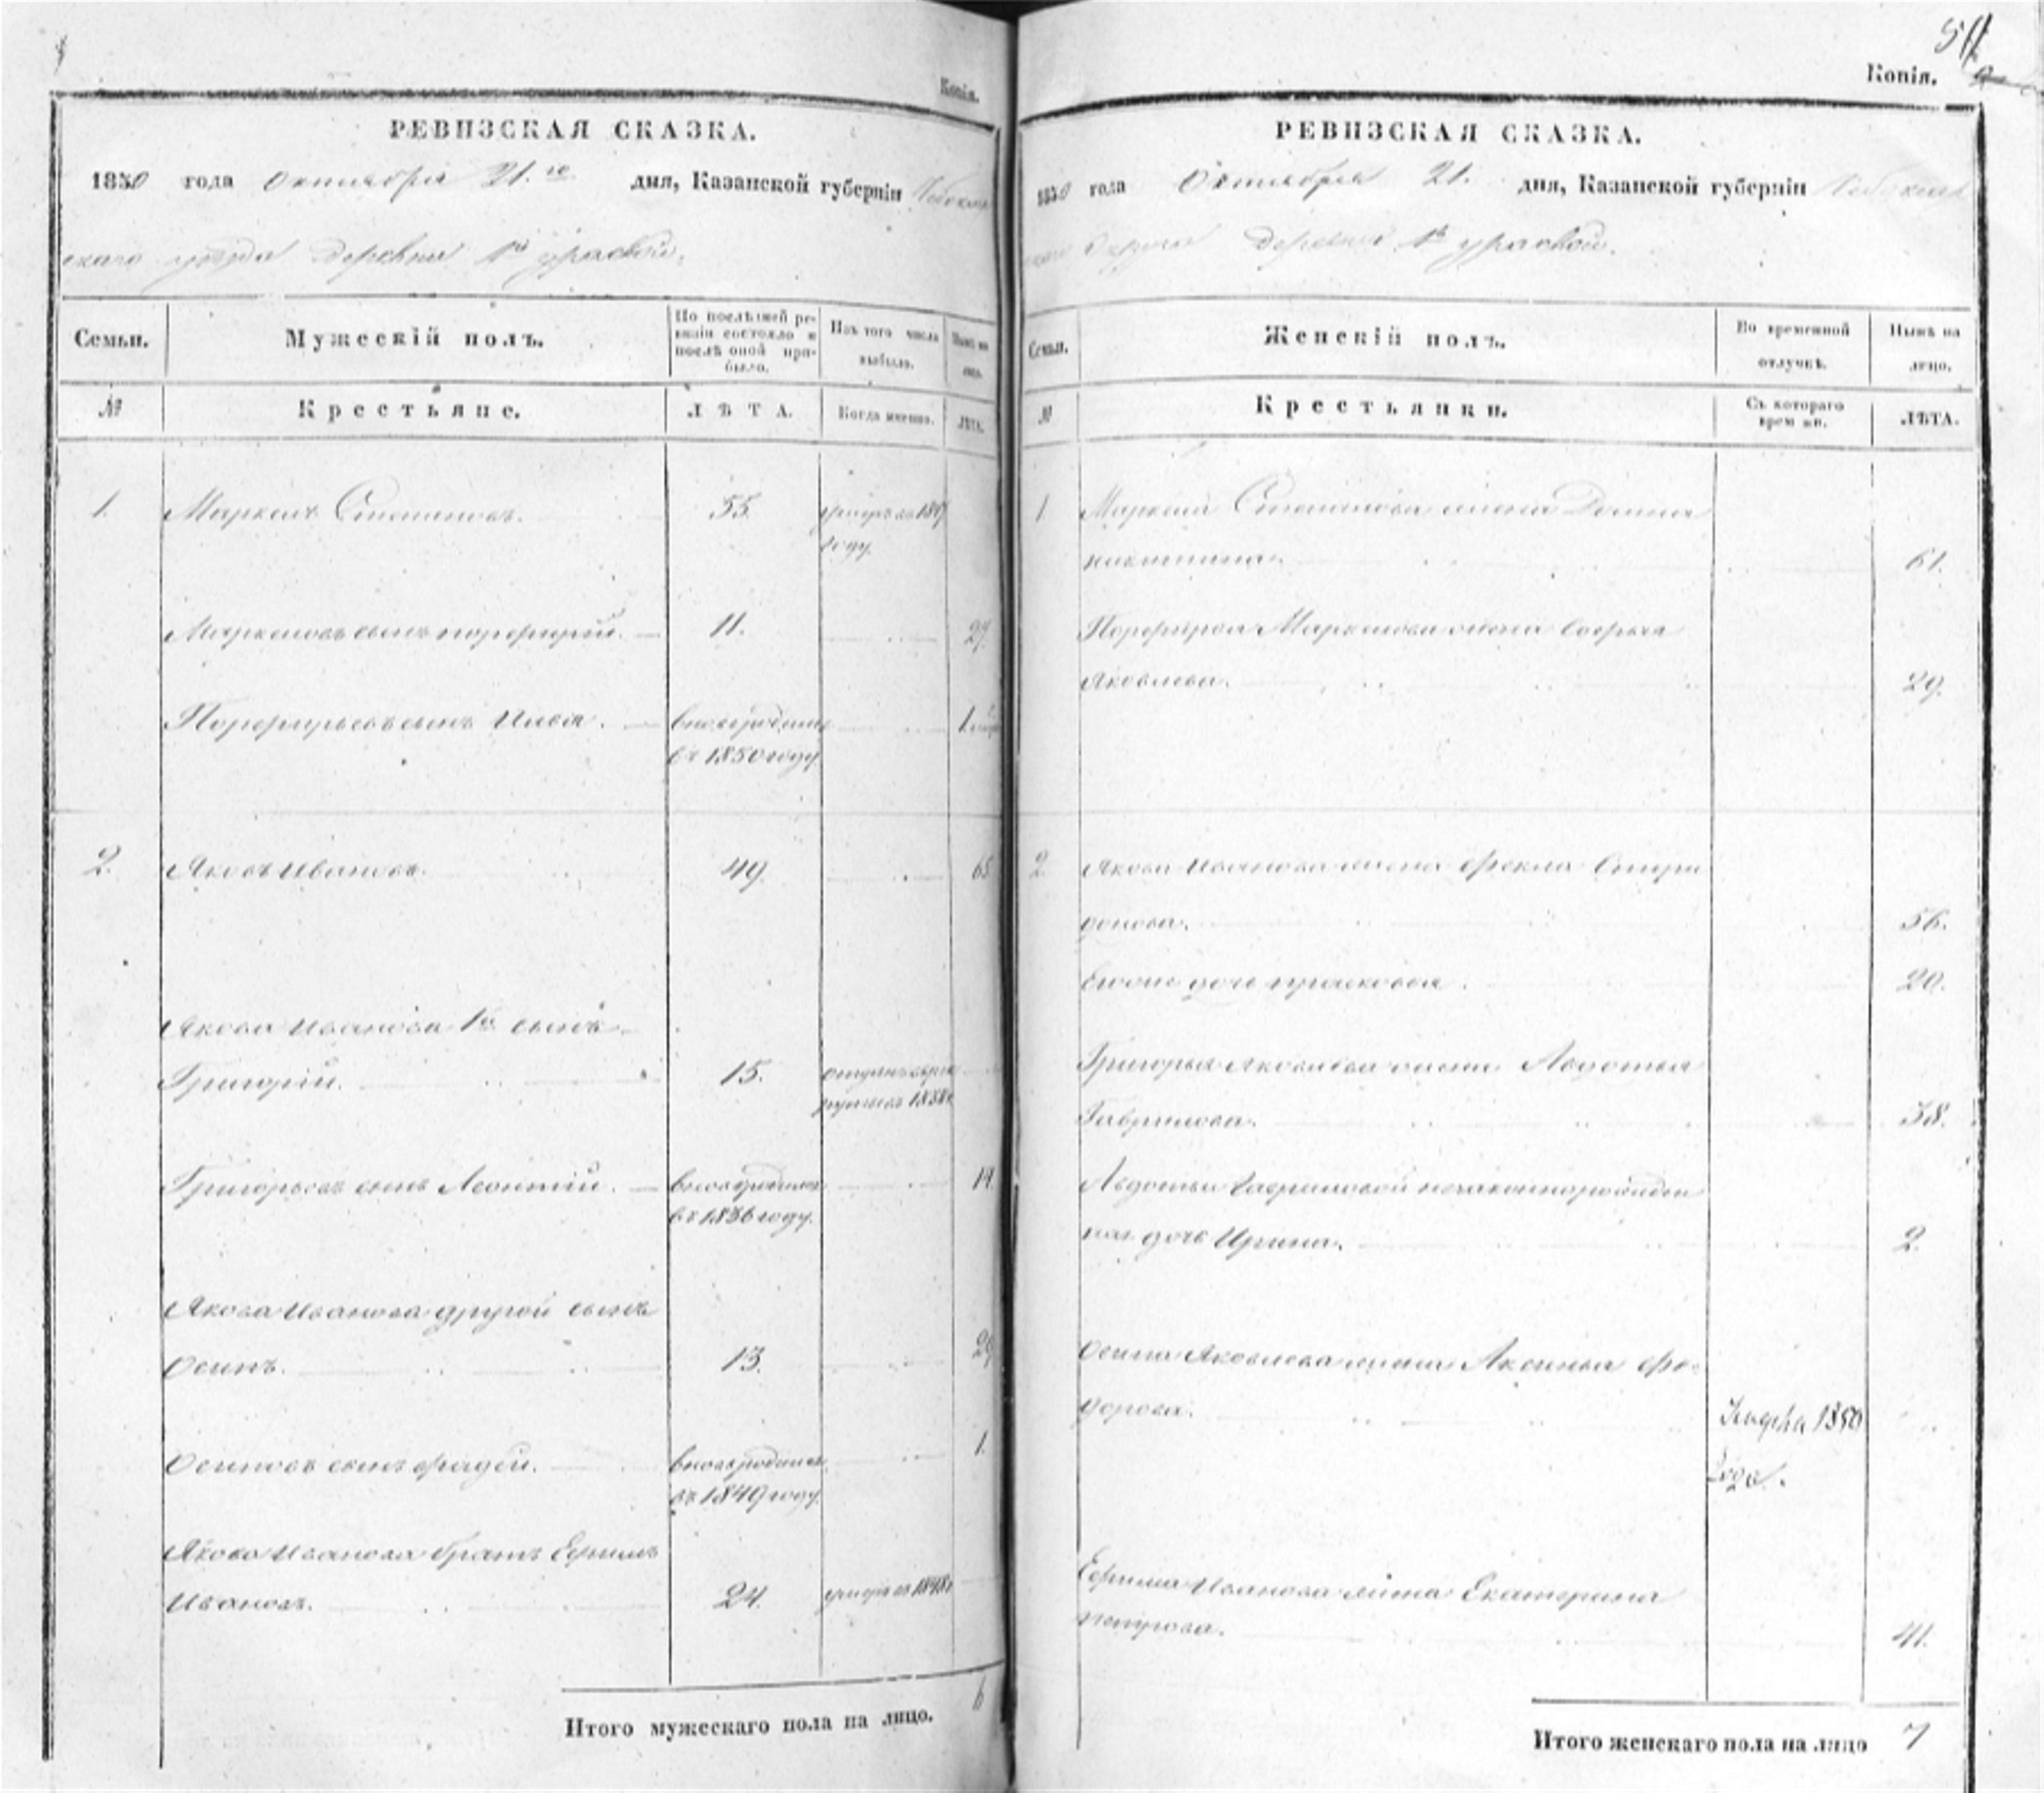 Копія.
РЕВИЗСКАЯ СКАЗКА.
1850 года Октября 21.го дня, Казанской губерніи Чебоксар
скаго уѣзда деревни 1й
Семьи.
Мужескій полъ.
По послѣдней ре-
визіи состояло и
послѣ оной при-
было.
Изъ того числа
выбыло.
Нынѣ на
лицо.
№
Крестьяне.
ЛѢТА.
Когда именно.
ЛѢТА.
1. Маркелъ Степановъ. 55. умеръ въ 1847
году.
Маркеловъ сынъ порфирій. 11. 27.
Порфирьевъ сынъ Илья. вновь рожденъ 1
въ 1850 году.
2. Яковъ Ивановъ. 49. 65
Якова Иванова 1й сынъ
Григорій. 15. отданъ въ ре
круты въ 1838
Григорьевъ сынъ Леонтій. вновь рожденъ 14.
въ 1836 году.
Якова Иванова другой сынъ
Осипъ. 13. 29
Осиповъ сынъ фадей. вновь рожденъ 1.
въ 1849 году.
Якова Иванова братъ Ефимъ
Ивановъ. 24. умеръ въ 1848
Итого мужескаго пола на лицо. 6
Копія.
РЕВИЗСКАЯ СКАЗКА.
1850 года Октября 21. дня, Казанской губерніи Чебоксар
скаго Округа деревни 1й
Семьи.
Женскій полъ.
Во временной
отлучкѣ.
Нынѣ на
лицо.
№
Крестьянки.
Съ котораго
времени.
ЛѢТА.
1. Маркела Степанова жена
никитина. 61.
Порфирія Маркелова жена Софья
Яковлева. 29.
2. Якова Иванова жена фекла Спири
донова. 56.
Егоже дочь прасковья. 20.
Григорья Яковлева жена Авдотья
Гаврилова. 38.
Авдотьи Гавриловой незаконнорожден
ная дочь Ирина. 2.
Осипа Яковлева жена Аксинья фе-
дорова. 1850
Года.
Ефима Иванова жена Екатерина
петрова. 41.
Итого женскаго пола на лицо 7